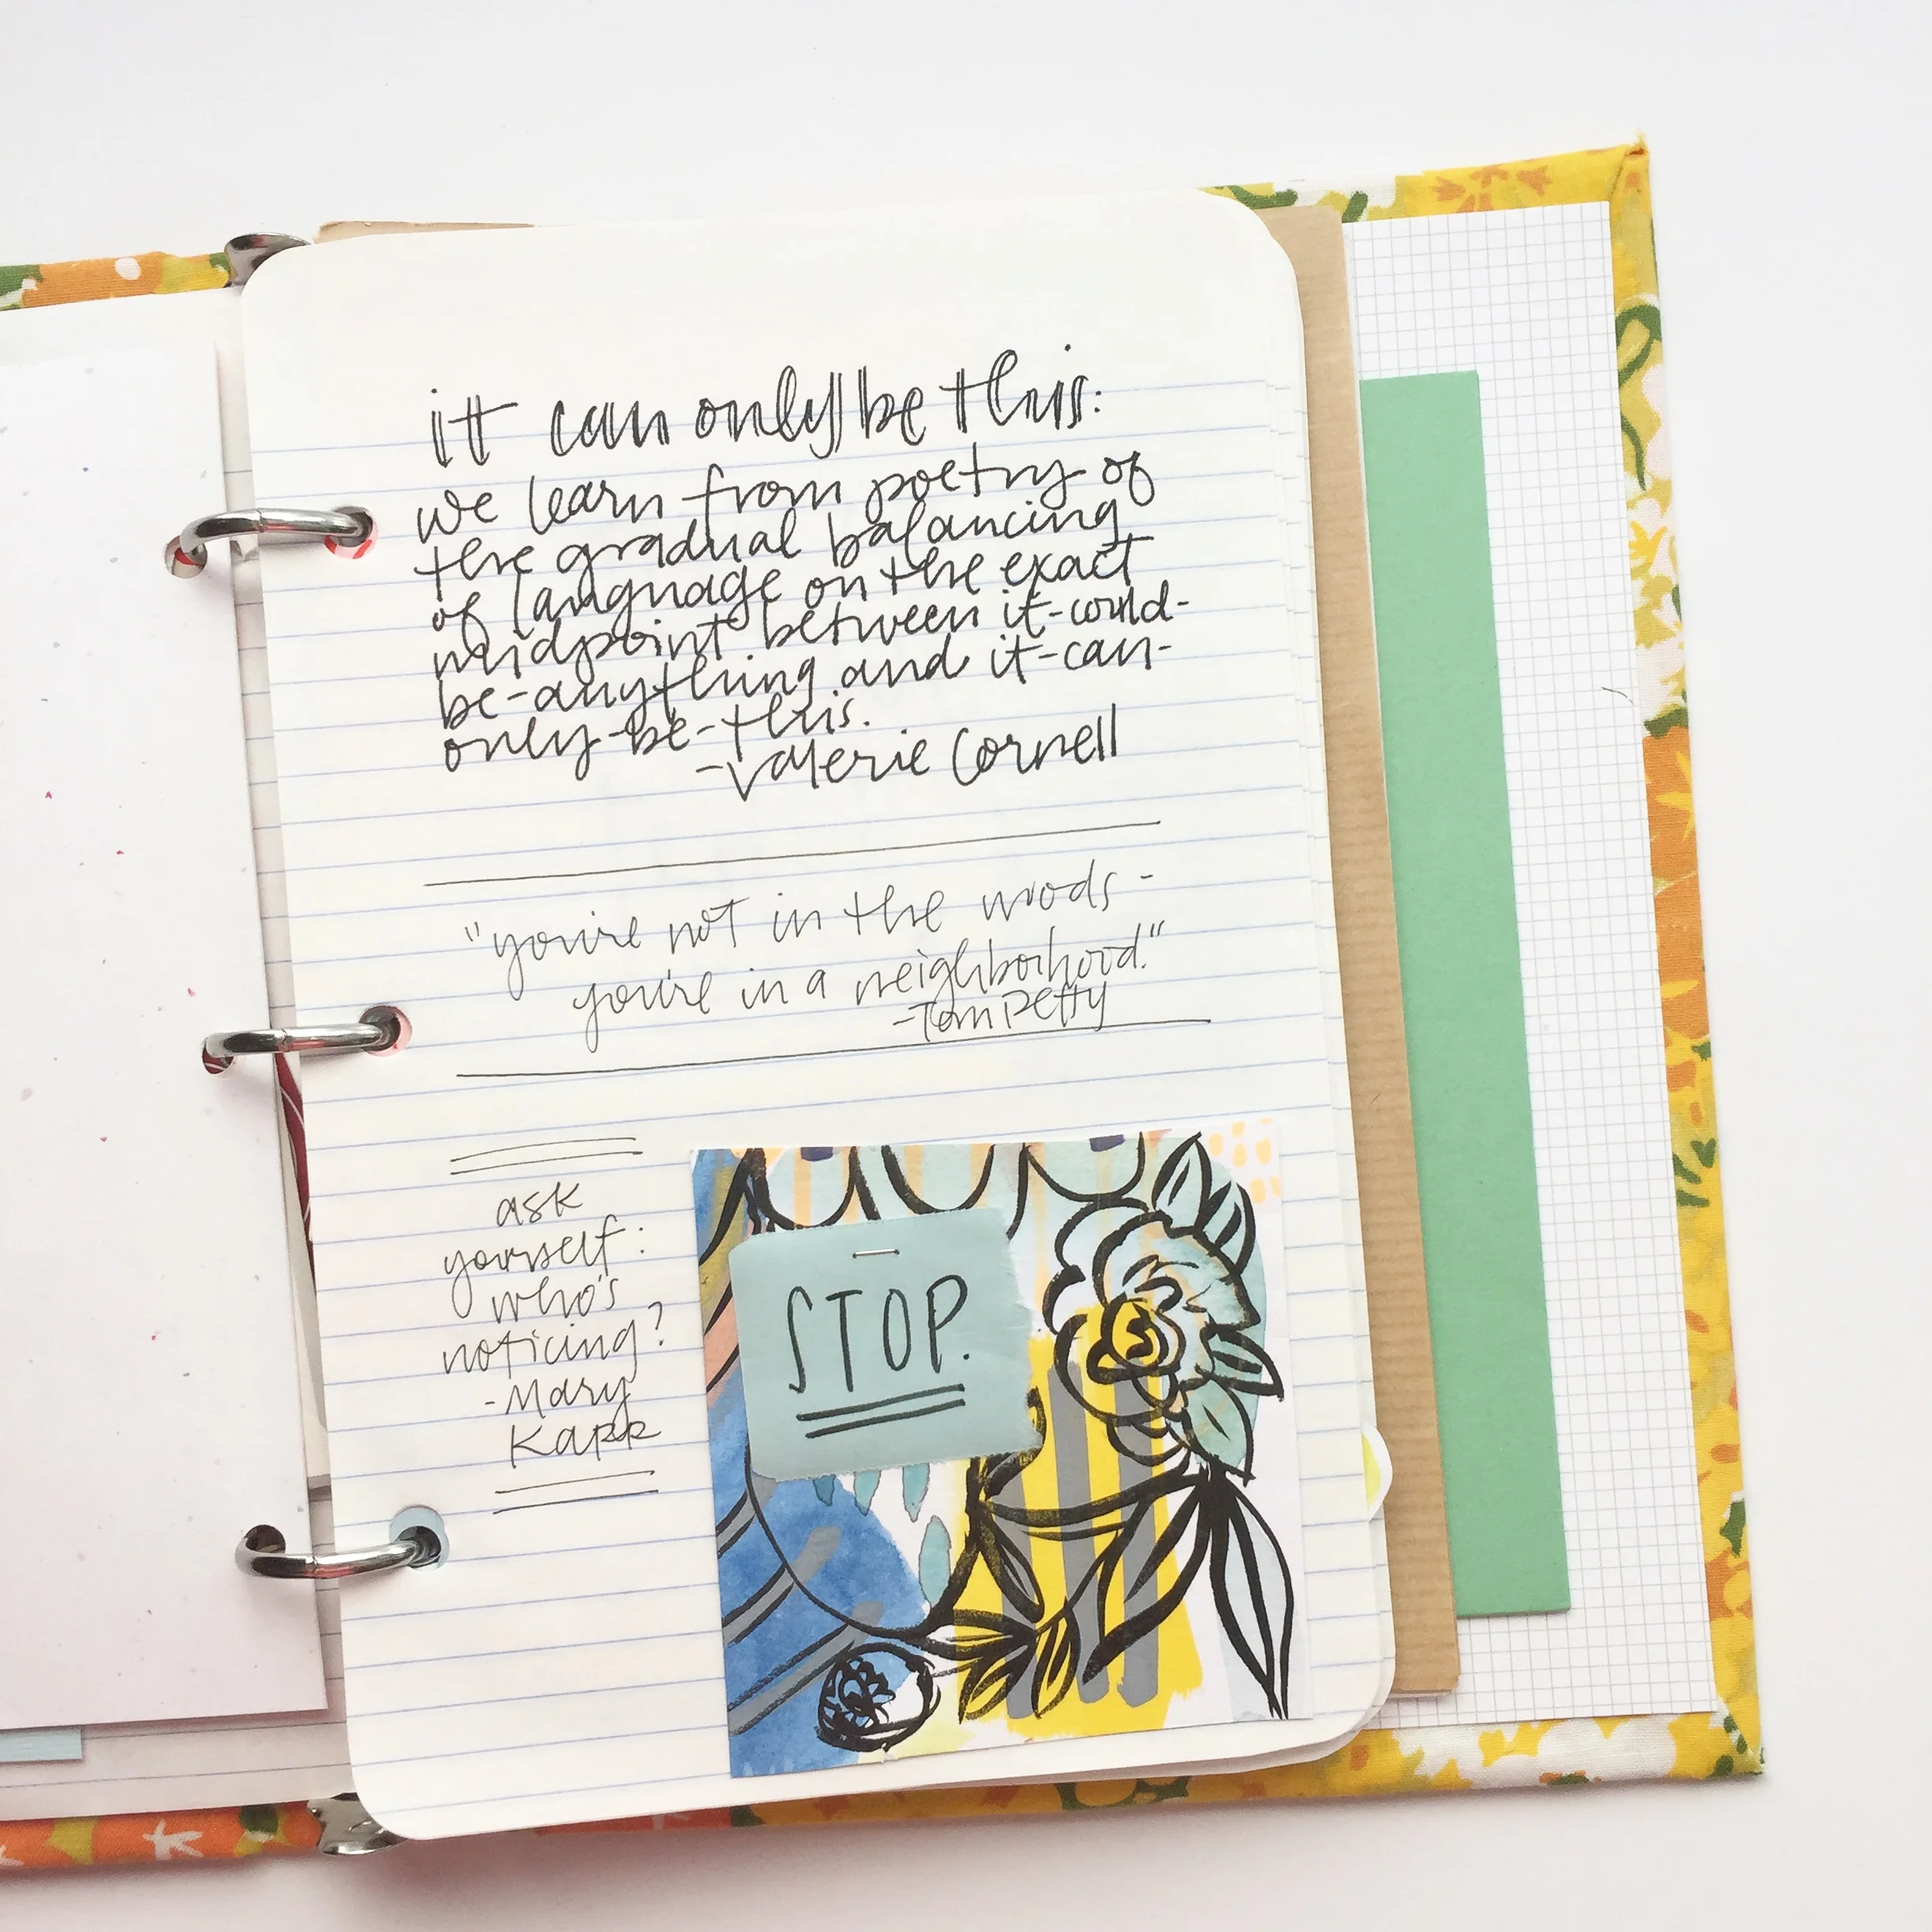 it can only be this:
we learn from poetry of
the gradual balancing
of language on the exact
midpoint between it-could-
be-anything and it-can-
only-be-this.
-Valerie Cornell
"you're not in the woods -
you're in a neighborhood."
-Tom Petty
ask
yourself:
who's
noticing?
-Mary
Karr
STOP.